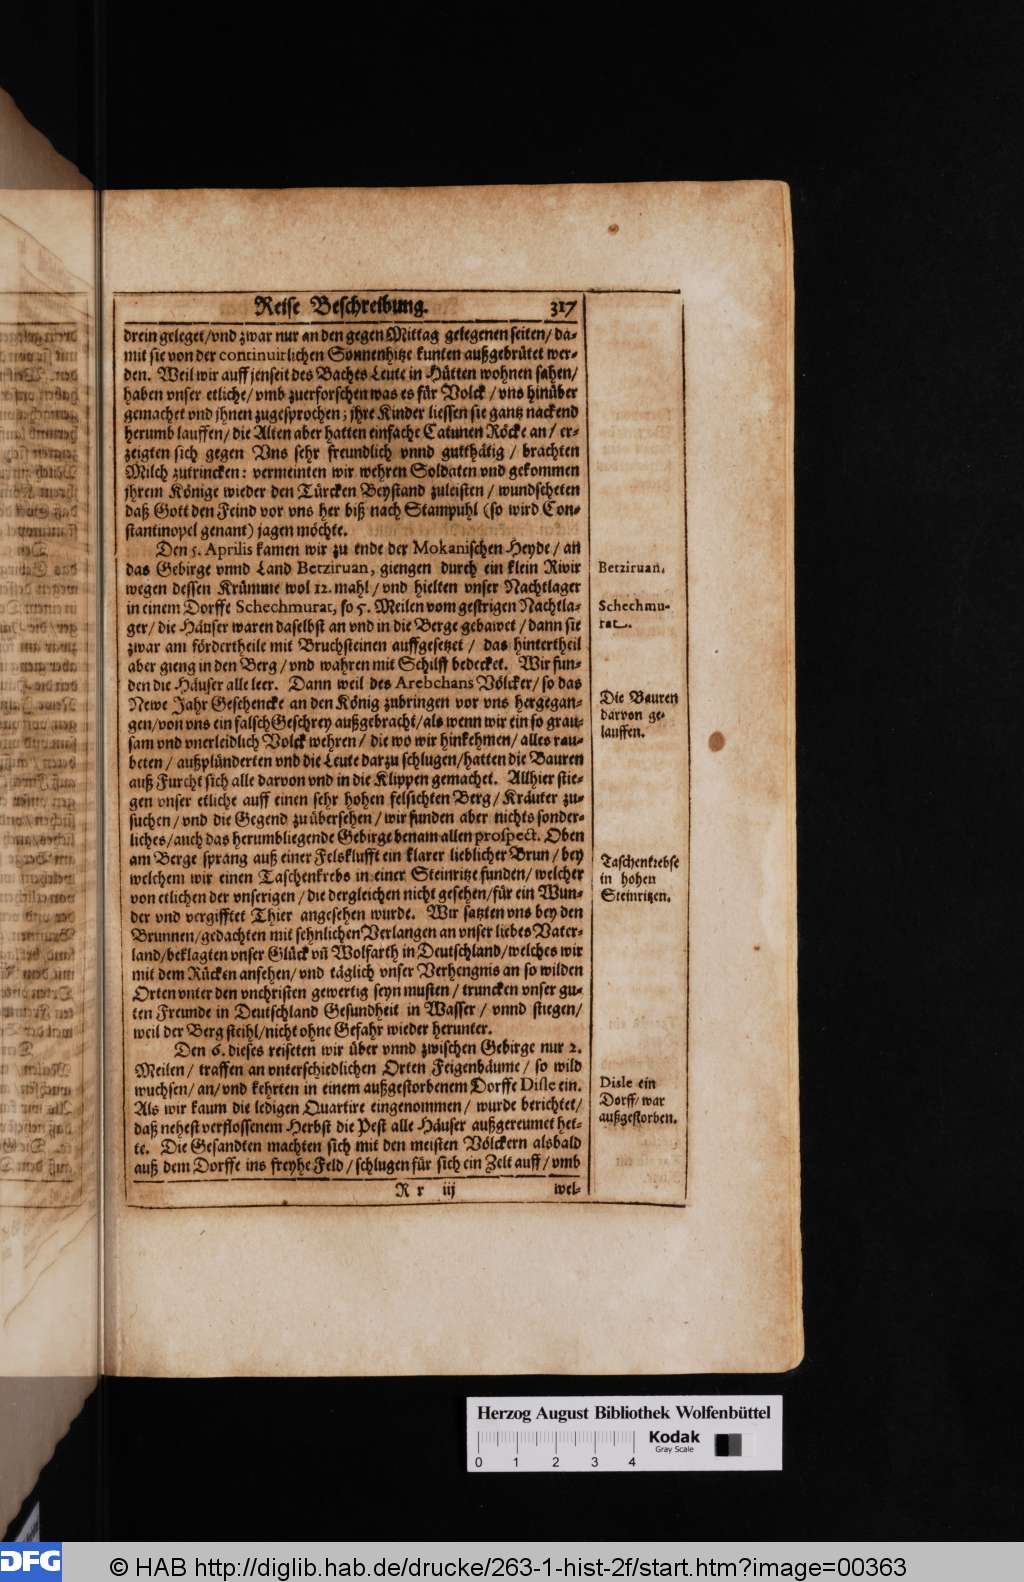 Reise Beschreibung. 317
drein geleget/vnd zwar nur an den gegen Mittag gelegenen seiten/ da-
mit sie von der continuirlichen Sonnenhitze kunten außgebrütet wer-
den. Weil wir auff jenseit des Baches Leute in Hütten wohnen sahen/
haben vnser etliche/ vmb zuerforschen was es für Volck / vns hinüber
gemachet vnd jhnen zugesprochen; jhre Kinder liessen sie gantz nackend
herumb lauffen/ die Alten aber hatten einfache Catunen Röcke an/ er-
zeigten sich gegen Vns sehr freundlich vnnd gutthätig / brachten
Milch zutrincken: vermeinten wir wehren Soldaten vnd gekommen
jhrem Könige wieder den Türcken Beystand zuleisten / wundscheten
daß Gott den Feind vor vns her biß nach Stampuhl (so wird Con-
stantinopel genant) jagen möchte.
Den 5. Aprilis kamen wir zu ende der Mokanischen Heyde/ an
das Gebirge vnnd Land Betziruan, giengen durch ein klein Rivir
wegen dessen Krümme wol 12. mahl/ vnd hielten vnser Nachtlager
in einem Dorffe Schechmurat, so 5. Meilen vom gestrigen Nachtla-
ger/ die Häuser waren daselbst an vnd in die Berge gebawet/ dann sie
zwar am fördertheile mit Bruchsteinen auffgesetzet / das hintertheil
aber gieng in den Berg/ vnd wahren mit Schilff bedecket. Wir fun-
den die Häuser alle leer. Dann weil des Arebchans Völcker/ so das
Newe Jahr Geschencke an den König zubringen vor vns hergegan-
gen/von vns ein falsch Geschrey außgebracht/als wenn wir ein so grau-
sam vnd vnerleidlich Volck wehren/ die wo wir hinkehmen/ alles rau-
beten / außplünderten vnd die Leute darzu schlugen/hatten die Bauren
auß Furcht sich alle darvon vnd in die Klippen gemachet. Allhier stie-
gen vnser etliche auff einen sehr hohen felsichten Berg/ Kräuter zu-
suchen/ vnd die Gegend zu übersehen/ wir funden aber nichts sonder-
liches/auch das herumbliegende Gebirge benam allen prospect. Oben
am Berge sprang auß einer Felsklufft ein klarer lieblicher Brun/ bey
welchem wir einen Taschenkrebs in einer Steinritze funden/ welcher
von etlichen der vnserigen / die dergleichen nicht gesehen/für ein Wun-
der vnd vergifftet Thier angesehen wurde. Wir satzten vns bey den
Brunnen/gedachten mit sehnlichen Verlangen an vnser liebes Vater-
land/beklagten vnser Glück vñ Wolfarth in Deutschland/welches wir
mit dem Rücken ansehen/ vnd täglich vnser Verhengnis an so wilden
Orten vnter den vnchristen gewertig seyn musten/ truncken vnser gu-
ten Freunde in Deutschland Gesundheit in Wasser / vnnd stiegen/
weil der Berg steihl/nicht ohne Gefahr wieder herunter.
Den 6. dieses reiseten wir über vnnd zwischen Gebirge nur 2.
Meilen/ traffen an vnterschiedlichen Orten Feigenbäume/ so wild
wuchsen/ an/vnd kehrten in einem außgestorbenem Dorffe Disle ein.
Als wir kaum die ledigen Quartire eingenommen/ wurde berichtet/
daß nehest verflossenem Herbst die Pest alle Häuser außgereumet het-
te. Die Gesandten machten sich mit den meisten Völckern alsbald
auß dem Dorffe ins freyhe Feld/ schlugen für sich ein Zelt auff/ vmb
R r iij wel-
Betziruan.
Schechmu-
rat.
Die Bauren
darvon ge-
lauffen.
Taschenkrebse
in hohen
Steinritzen.
Disle ein
Dorff/ war
außgestorben.
Herzog August Bibliothek Wolfenbüttel
Kodak
Gray Scale
0 1 2 3 4
DFG
© HAB http://diglib.hab.de/drucke/263-1-hist-2f/start.htm?image=00363